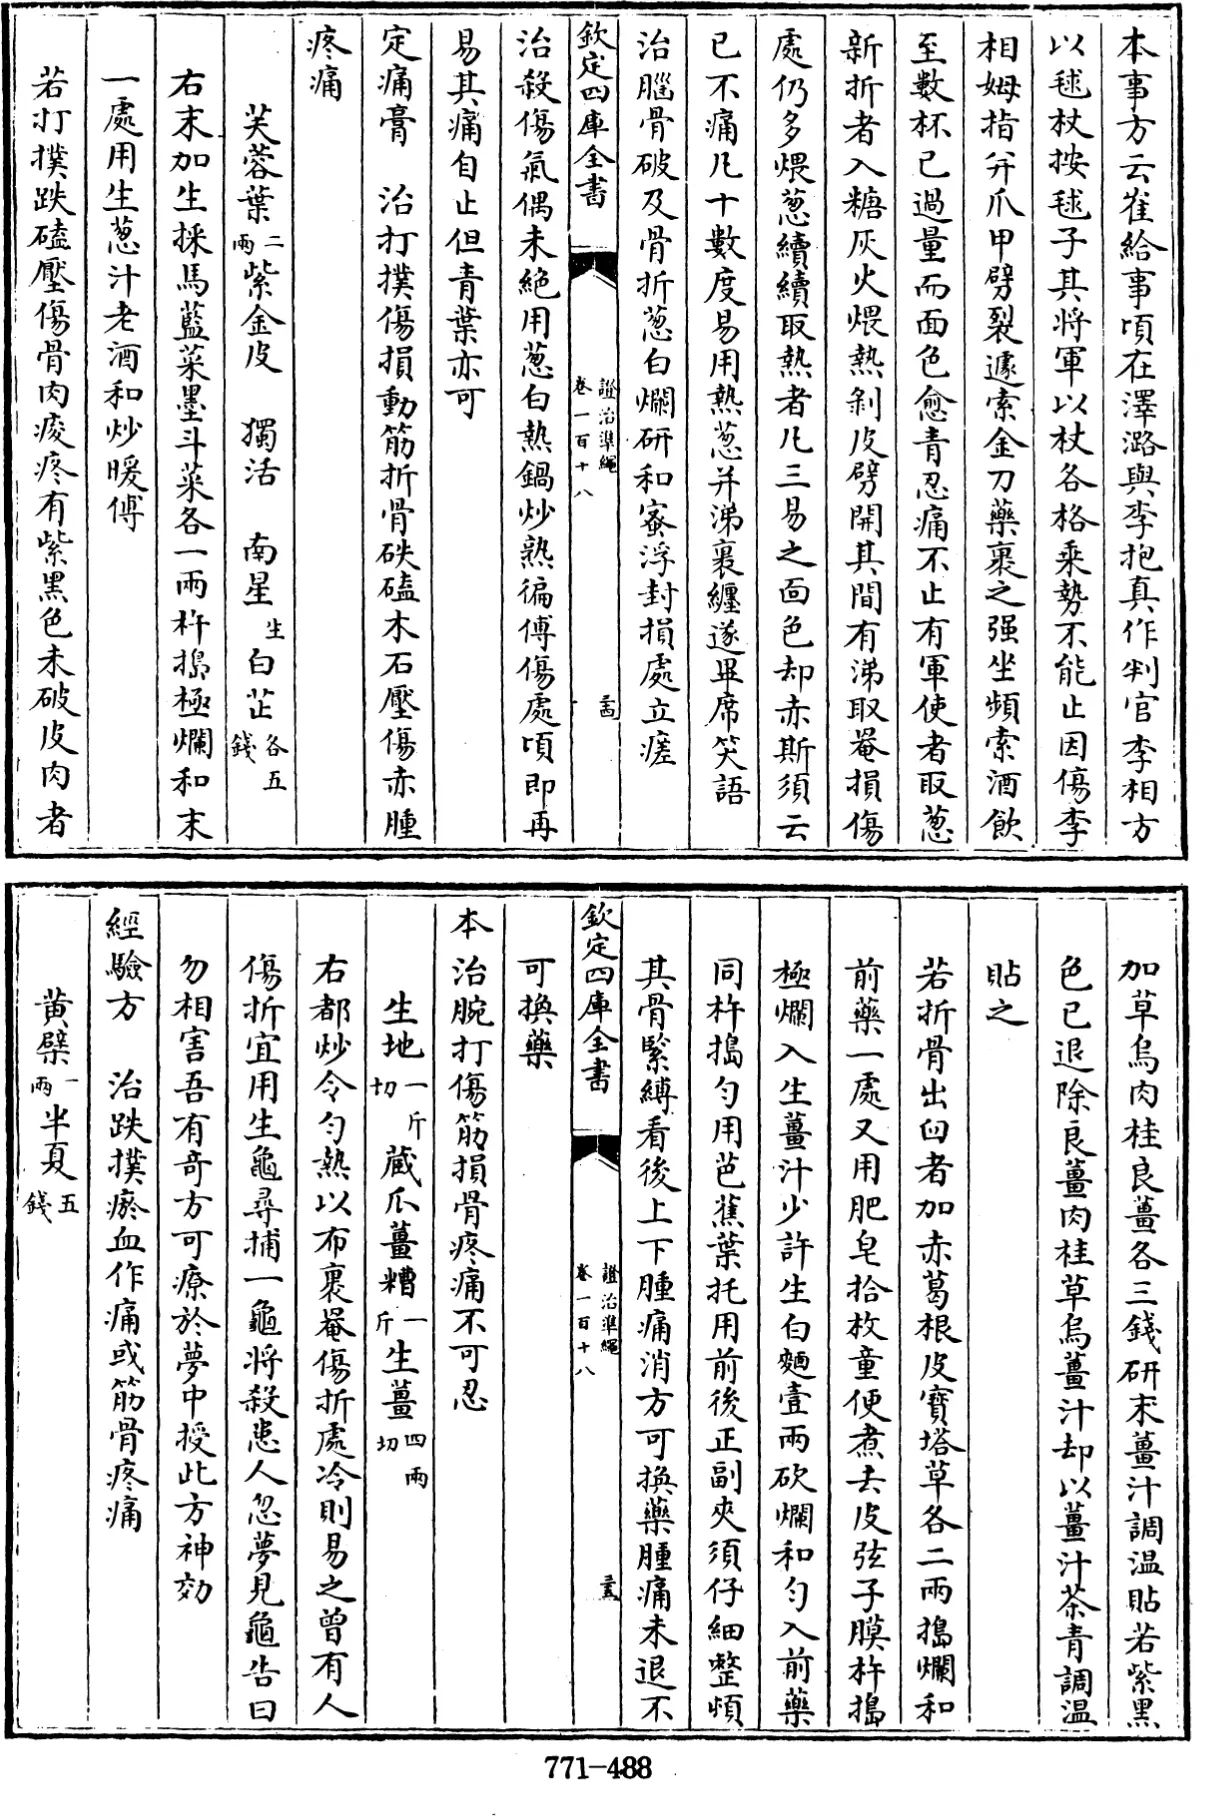 本事方云崔給事頃在澤潞與李抱真作判官李相方
以毬杖按毬子其將軍以杖各格乘勢不能止因傷李
相姆指并爪甲劈裂遽索金刀藥裹之强坐頻索酒飲
至數杯已過量而面色愈青忍痛不止有軍使者取葱
新折者入糖灰火煨熱剝皮劈開其間有涕取罨損傷
處仍多煨葱續續取熱者凡三易之面色却赤斯須云
已不痛凡十數度易用熱葱并涕裹纏遂畢席笑語
治腦骨破及骨折葱白爛研和蜜浮封損處立瘥
欽定四庫全書
證治準繩
卷一百十八
治殺傷氣偶未絶用葱白熱鍋炒熟徧傅傷處頃即再
易其痛自止但青葉亦可
定痛膏 治打撲傷損動筋折骨跌磕木石壓傷赤腫
疼痛
芙蓉葉二兩紫金皮 獨活 南星生白芷各五錢
右末加生採馬藍菜墨斗菜各一兩杵搗極爛和末
一處用生葱汁老酒和炒暖傅
若打撲跌磕壓傷骨肉痠疼有紫黑色未破皮肉者
加草烏肉桂良薑各三錢研末薑汁調温貼若紫黑
色已退除良薑肉桂草烏薑汁却以薑汁茶青調温
貼之
若折骨出臼者加赤葛根皮寶塔草各二兩搗爛和
前藥一處又用肥皂拾枚童便煮去皮弦子膜杵搗
極爛入生薑汁少許生白麵壹兩砍爛和匀入前藥
同杵搗匀用芭蕉葉托用前後正副夾須仔細整頓
其骨緊縛看後上下腫痛消方可換藥腫痛未退不
欽定四庫全書
證治準繩
卷一百十八
可換藥
本治腕打傷筋損骨疼痛不可忍
生地一斤切 藏瓜薑糟一斤生薑四兩切
右都炒令匀熱以布裹罨傷折處冷則易之曾有人
傷折宜用生龜尋捕一龜將殺患人忽夢見龜告曰
勿相害吾有奇方可療於夢中授此方神効
經驗方 治跌撲瘀血作痛或筋骨疼痛
黄檗一兩半夏五錢
771-488